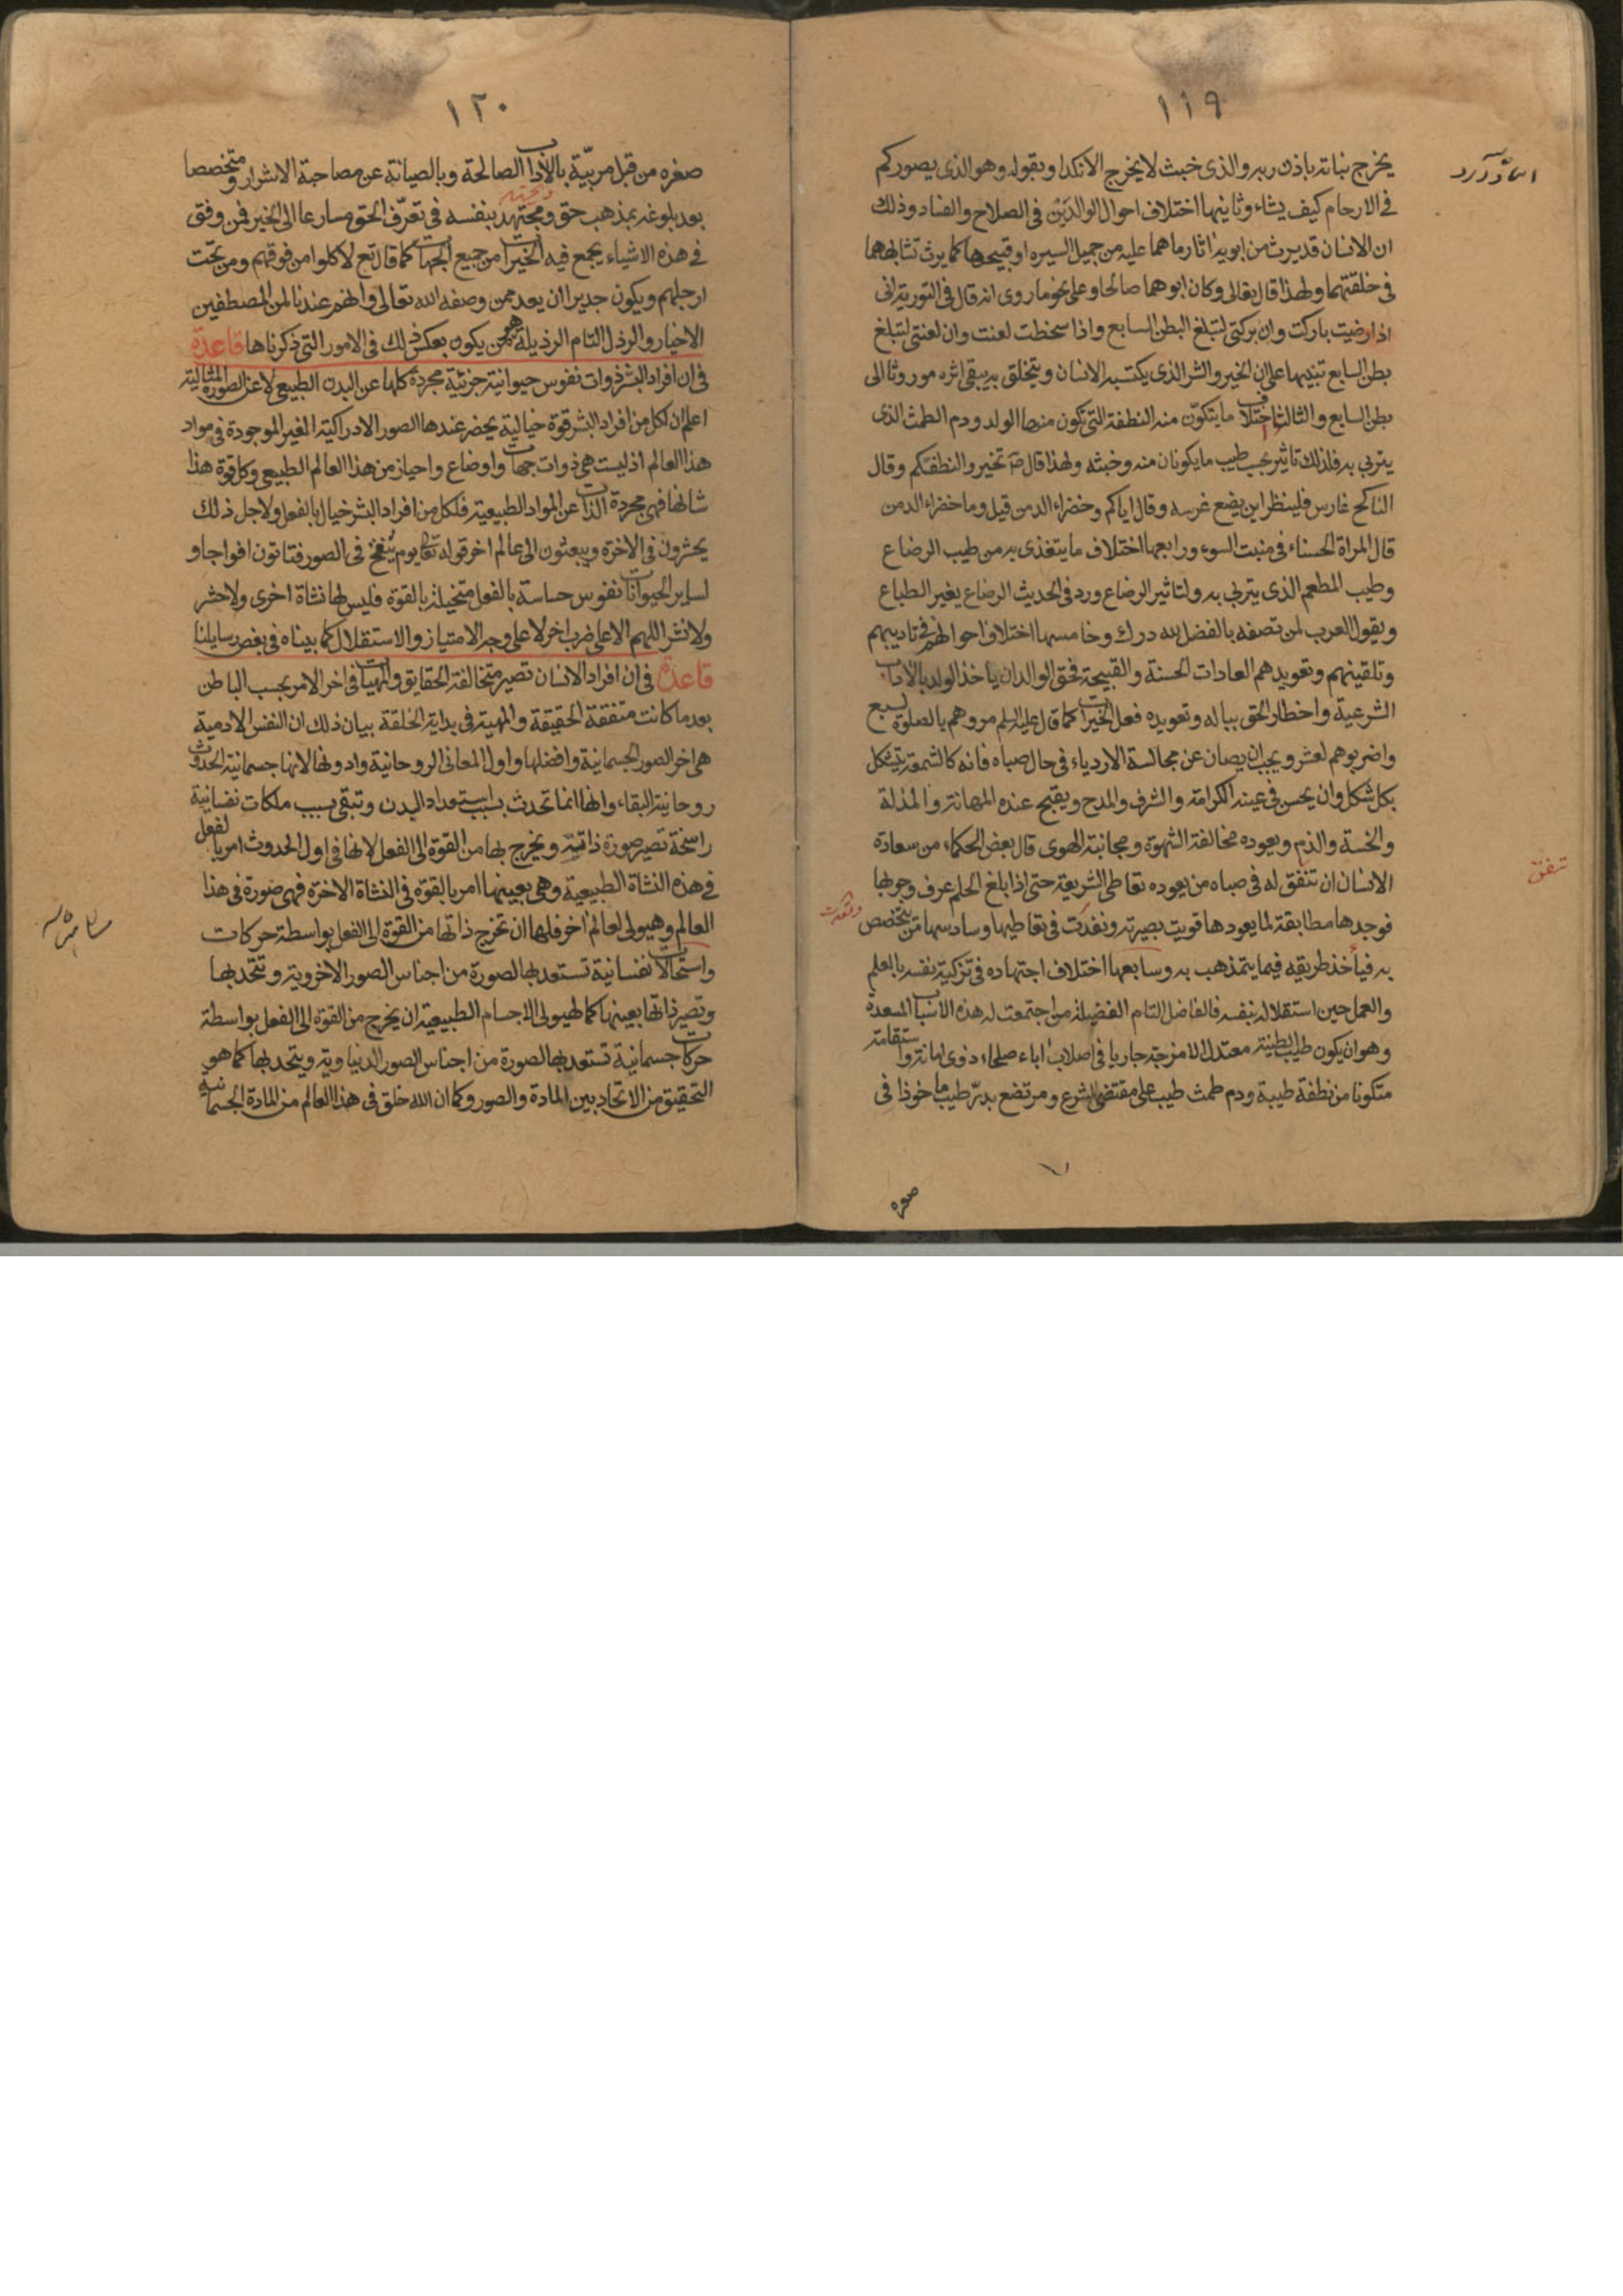 ١١٩
يخرج نباته باذن ربه والذى خبث لا يخرج الا نكدا وبقوله وهو الذى يصوركم
فى الارحام كيف يشاء وثانيها اختلاف احوال الوالدين فى الصلاح والفساد وذلك
ان الانسان قد يرث من ابويه اثار ما هما عليه من جميل السيره او قبيحها كما يرث تشابههما
فى خلقتهما ولهذا قال تعالى وكان ابوهما صالحا وعلى نحو ما روى انه قال فى التورية انى
اذا رضيت باركت وان بركتى لتبلغ البطن السابع واذا سخطت لعنت وان لعنتى لتبلغ
بطن السابع تنبيها على ان الخير والشر الذى يكتسبه الانسان ويتخلق به يبقى اثره موروثا الى
بطن السابع والثالث اختلاف ما يتكون منه النطفة التى تكون منها الولد ودم الطمث الذى
يتربى به فلذلك تاثير بحسب طيب ما يكونان منه وخبثه ولهذا قال ص تخيروا لنطفكم وقال
الناكح غارس فلينظر اين يضع غرسه وقال اياكم وخضراء الدمن قيل وما خضراء الدمن
قال المراة الحسناء فى منبت السوء ورابعها اختلاف ما يتغذى به من طيب الرضاع
وطيب المطعم الذى يتربى به ولتاثير الرضاع ورد فى الحديث الرضاع يغير الطباع
ويقول العرب لمن تصفه بالفضل لله درك وخامسها اختلاف احوالهم فى تاديبهم
وتلقينهم وتعويدهم العادات الحسنة والقبيحة فحق الوالدان ياخذ الولد بالاداب
الشرعية واخطار الحق بباله وتعويده فعل الخيرات كما قال عليه السلم مروهم بالصلوة لسبع
واضربوهم لعشر ويجب ان يصان عن مجالسة الاردياء فى حال صباه فانه كالشمعة يتشكل
بكل شكل وان يحسن فى عينه الكرامة والشرف والمدح ويقبح عنده المهانة والمذلة
والخسة والذم ويعوده مخالفة الشهوة ومجانبة الهوى قال بعض الحكماء من سعادة
الانسان ان تتفق له فى صباه من يعوده تعاطى الشريعة حتى اذا بلغ الحلم عرف وجوبها
تتفق
فوجدها مطابقة لما يعودها قويت بصيرته ونفذت فى تعاطيها وسادسها من يتخصص
به فياخذ طريقه فيما يتمذهب به وسابعها اختلاف اجتهاده فى تزكية نفسه بالعلم
والعمل حين استقلاله بنفسه فالفاضل التام الفضيلة من اجتمعت له هذه الاسباب المسعدة
وهو ان يكون طيب الطينة معتدل الامزجة جاريا فى اصلاب اباء صلحاء ذوى امانة واستقامة
متكونا من نطفة طيبة ودم طمث طيب على مقتضى الشرع ومرتضع بدر طيب ماخوذا فى
صغره
١٢٠
صغره من قبل مربية بالاداب الصالحة وبالصيانة عن مصاحبة الاشرار ومتخصصا
بعد بلوغه بمذهب حق ومجتهد بنفسه فى تعرف الحق مسارعا الى الخير فمن وفق
فى هذه الاشياء يجمع فيه الخيرات من جميع الجهات كما قال تع لاكلوا من فوقهم ومن تحت
ارجلهم ويكون جديرا ان يعد ممن وصفه الله تعالى وانهم عندنا لمن المصطفين
الاخيار والرذل التام الرذيلة هو من يكون بعكس ذلك فى الامور التى ذكرناها قاعدة
فى ان افراد البشر ذوات نفوس حيوانية جزئية مجردة كلها عن البدن الطبيعى لا عن الصورة المثالية
اعلم ان لكل من افراد البشر قوة خيالية يحضر عندها الصور الادراكية الغير الموجودة فى مواد
هذا العالم اذ ليست هى ذوات جهات واوضاع واحياز من هذا العالم الطبيعى وكل قوة هذا
شانها فهى مجردة الذات عن المواد الطبيعية فلكل من افراد البشر خيال بالفعل ولاجل ذلك
يحشرون فى الاخرة ويبعثون الى عالم اخر قوله تعا يوم ينفخ فى الصور فتاتون افواجا و
لساير الحيوانات نفوس حساسة بالفعل متخيلة بالقوة فليس لها نشاة اخرى ولا حشر
ولا نشر اللهم الا على ضرب اخر لا على وجه الامتياز والاستقلال كما بيناه فى بعض رسايلنا
قاعدة فى ان افراد الانسان تصير متخالفة الحقايق والمهيات فى اخر الامر بحسب الباطن
بعد ما كانت متفقة الحقيقة والمهية فى بداية الخلقة بيان ذلك ان النفس الادمية
هى اخر الصور الجسمانية وافضلها واول المعانى الروحانية وادونها لانها جسمانية الحدوث
روحانية البقاء وانها انما تحدث بسبب استعداد البدن وتبقى بسبب ملكات نفسانية
راسخة تصير صورة ذاتية ويخرج بها من القوة الى الفعل لانها فى اول الحدوث امر بالفعل
فى هذه النشاة الطبيعية وهى بعينها امر بالقوة فى النشاة الاخرة فهى صورة فى هذا
العالم وهيولى لعالم اخر فلها ان تخرج ذاتها من القوة الى الفعل بواسطة حركات
واستحالات نفسانية تستعد بها لصورة من اجناس الصور الاخروية وتتحد بها
وتصير ذاتها بعينها كما لهيولى الاجسام الطبيعية ان يخرج من القوة الى الفعل بواسطة
حركات جسمانية تستعد بها لصورة من اجناس الصور الدنياوية ويتحد بها كما هو
التحقيق من الاتحاد بين المادة والصور وكما ان الله خلق فى هذا العالم من المادة الجسمانية